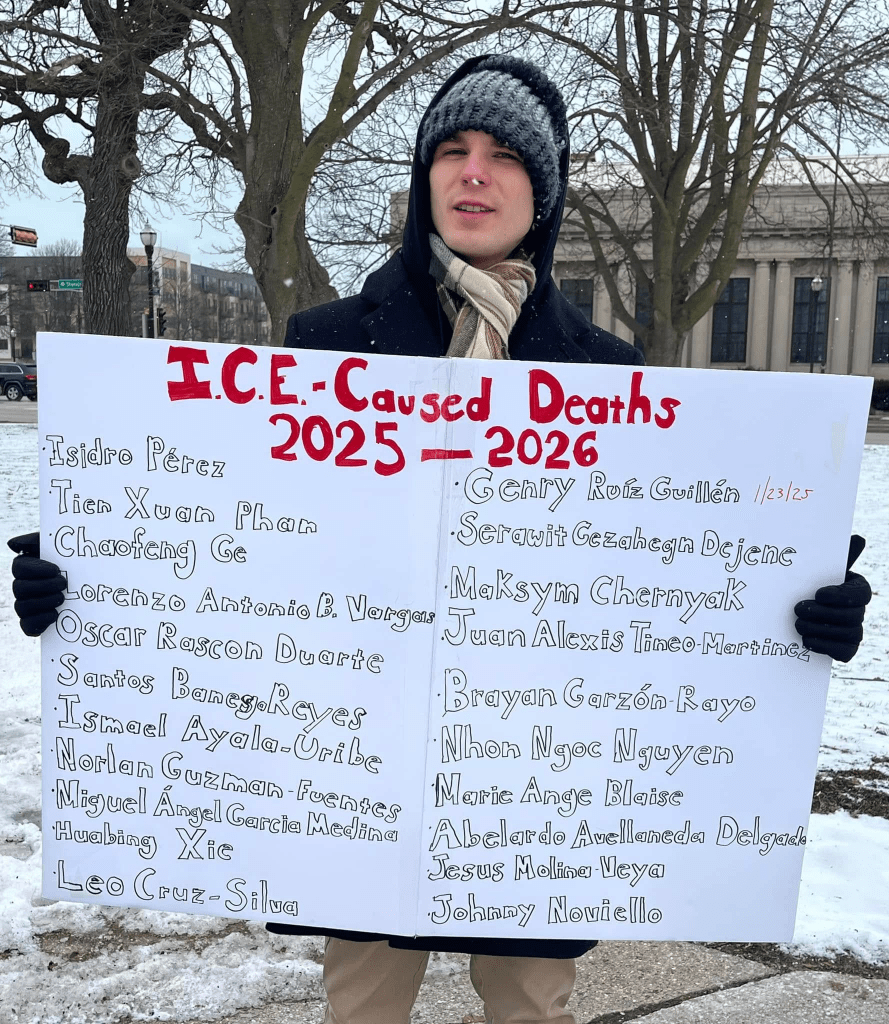 I.C.E.-Caused Deaths
2025 — 2026
·Isidro Pérez
·Tien Xuan Phan
·Chaofeng Ge
·Lorenzo Antonio B. Vargas
·Oscar Rascon Duarte
·Santos Banega Reyes
·Ismael Ayala-Uribe
·Norlan Guzman-Fuentes
·Miguel Ángel Garcia Medina
·Huabing Xie
·Leo Cruz-Silva
·Genry Ruíz Guillén 1/23/25
·Serawit Gezahegn Dejene
·Maksym Chernyak
·Juan Alexis Tineo-Martinez
·Brayan Garzón-Rayo
·Nhon Ngoc Nguyen
·Marie Ange Blaise
·Abelardo Avellaneda Delgado
·Jesus Molina-Veya
·Johnny Noviello